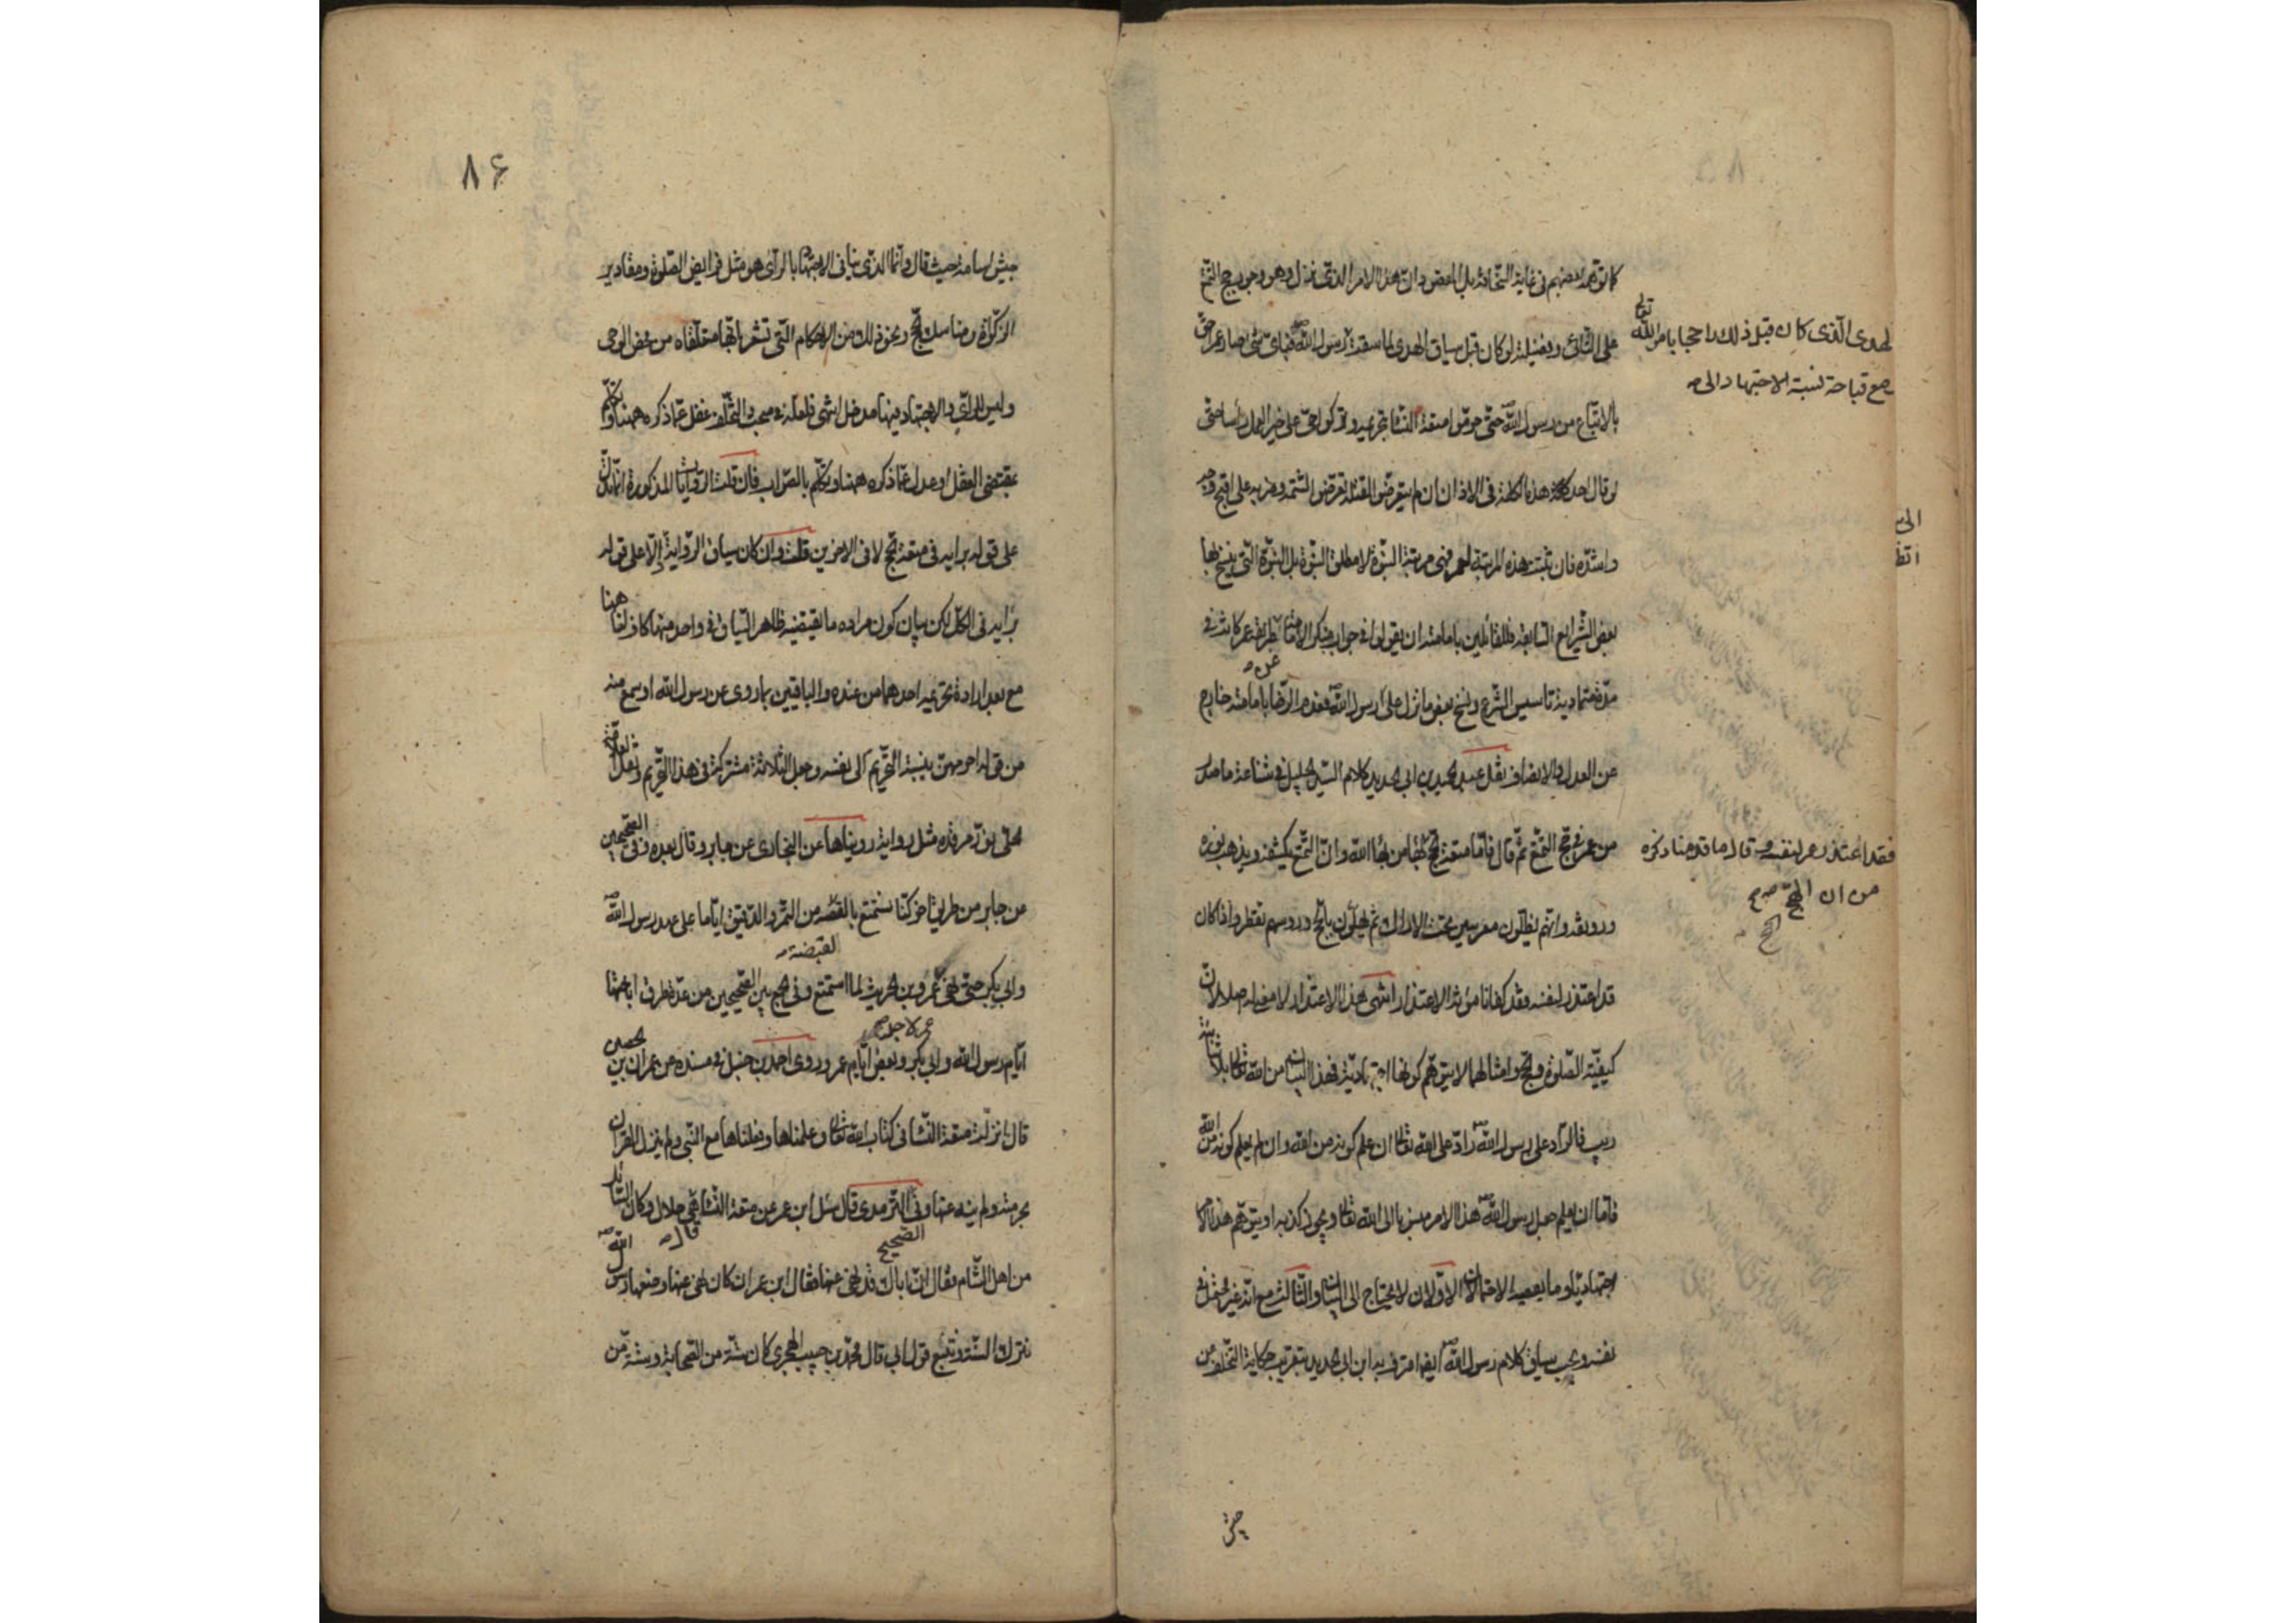 كما توهمه بعضهم في غاية السخافة بل المعضود ان هذا الامر الذي نزل وهو وجوب حج التمتع
على النائي وفضيلته لو كان قبل سياق الهدي لما سقته رسول الله فبأي شئ صار عمر احق
بالاتباع من رسول الله حتى حرموا متعة النساء بتحريمه وتركوا حي على خير العمل رأسا حتى
لو قال احد هذه الكلمة في الاذان ان لم يتعرض لقتله تعرض لشتمه وضربه على اقبح وجه
واشده فان ثبتت هذه المرتبة لعمر فهي مرتبة النبوة لا مطلق النبوة بل النبوة التي ينسخ بها
بعض الشرايع السابقة فللقائلين بامامته ان يقولوا في جواب منكر الامامة طريقة عمر كانت في
مدة متمادية تاسيس الشرع ونسخ بعض ما نزل على رسول الله فعدم الرضا بامامته خارج
عن العدل والانصاف نقل عبد الحميد بن ابي الحديد كلام السيد الجليل في شناعة ما صدر
من عمر في حج التمتع ثم قال فاما متعة الحج بهاء من بهاء الله وان التمتع يكسفه ويذهب بنوره
ورونقه وانهم يظلون معرسين تحت الاراك ثم يهلون بالحج ورؤسهم تقطر واذا كان
قد اعتذر لنفسه فقد كفانا مؤنة الاعتذار انتهى هذا الاعتذار لا معنى له اصلا لان
كيفية الصلوة والحج وامثالهما لا يتوهم كونها اجتهادية فهذا البيان من الله تعالى بلا شائبة
ريب فالراد على رسول الله راد على الله تعالى ان علم كونه من الله وان لم يعلم كونه من الله
فاما ان يعلم جعل رسول الله هذا الامر منسوبا الى الله تعالى ويجوز كذبه او يتوهم هذا الامر
اجتهاديا وما يعصيه الاحتمالان الاولان لا يحتاج الى البيان والثالث مع انه غير محتمل في
نفسه ويجب سياق كلام رسول الله ايضا معترف به ابن ابي الحديد بتقريب حكاية التخلف عن
لهدي الذي كان قبل ذلك راجحا بامر الله تعالى
مع قباحة نسبة الاجتهاد الى
فقد اعتذر عمر لنفسه وقال ما قدمنا ذكره
من ان الحج
الحج
جيش
٨۶
جيش اسامة حيث قال وانما الذي ينافي الاجتهاد بالرأي هو مثل فرايض الصلوة ومقادير
الزكوة ومناسك الحج ونحو ذلك من الاحكام التي تشعر بانها متلقاة من محض الوحي
وليس للرأي والاجتهاد فيها مدخل انتهى فلعله في مبحث التخلف غفل عما ذكره ههنا وتكلم
بمقتضى العقل او عدل عما ذكره ههنا وتكلم بالصواب فان قلت الروايات المذكورة انما تدل
على قوله برايه في متعة الحج لا في الاخرين قلت وان كان سياق الرواية الا على قوله
برايه في الكل لكن بيان كون مراده ما يقتضيه ظاهر السياق في واحد منها كاف لنا ههنا
مع بعد ارادة تحريمه احدهما من عنده والباقيين بما روى عن رسول الله او سمع منه
من قوله احرمهن بنسبة التحريم الى نفسه وجعل الثلاثة مشتركة في هذا التحريم
وقال بعده وفي الصحيحين
من جابر من طريق اخر كنا نستمتع بالقبضة من التمر والدقيق اياما على عهد رسول الله
وابي بكر حتى نهى عمرو بن حريث لما استمتع وفي الجمع بين الصحيحين من عدة طرق اباحتها
ايام رسول الله وابي بكر وبعض ايام عمر وروى احمد بن حنبل في مسنده عن عمران بن حصين
قال انزلت متعة النساء في كتاب الله تعالى وعلمناها وفعلناها مع النبي ولم ينزل القران
بحرمته ولم ينه عنها وفي الترمذي قال سئل ابن عمر عن متعة النساء قال هي حلال وكان السائل
من اهل الشام فقال ان اباك قد نهى عنها فقال ابن عمر ان كان نهى عنها وصنعها رسول الله
نترك السنة ونتبع قول ابي قال محمد بن حبيب الهجري كان ستة من الصحابة وستة من